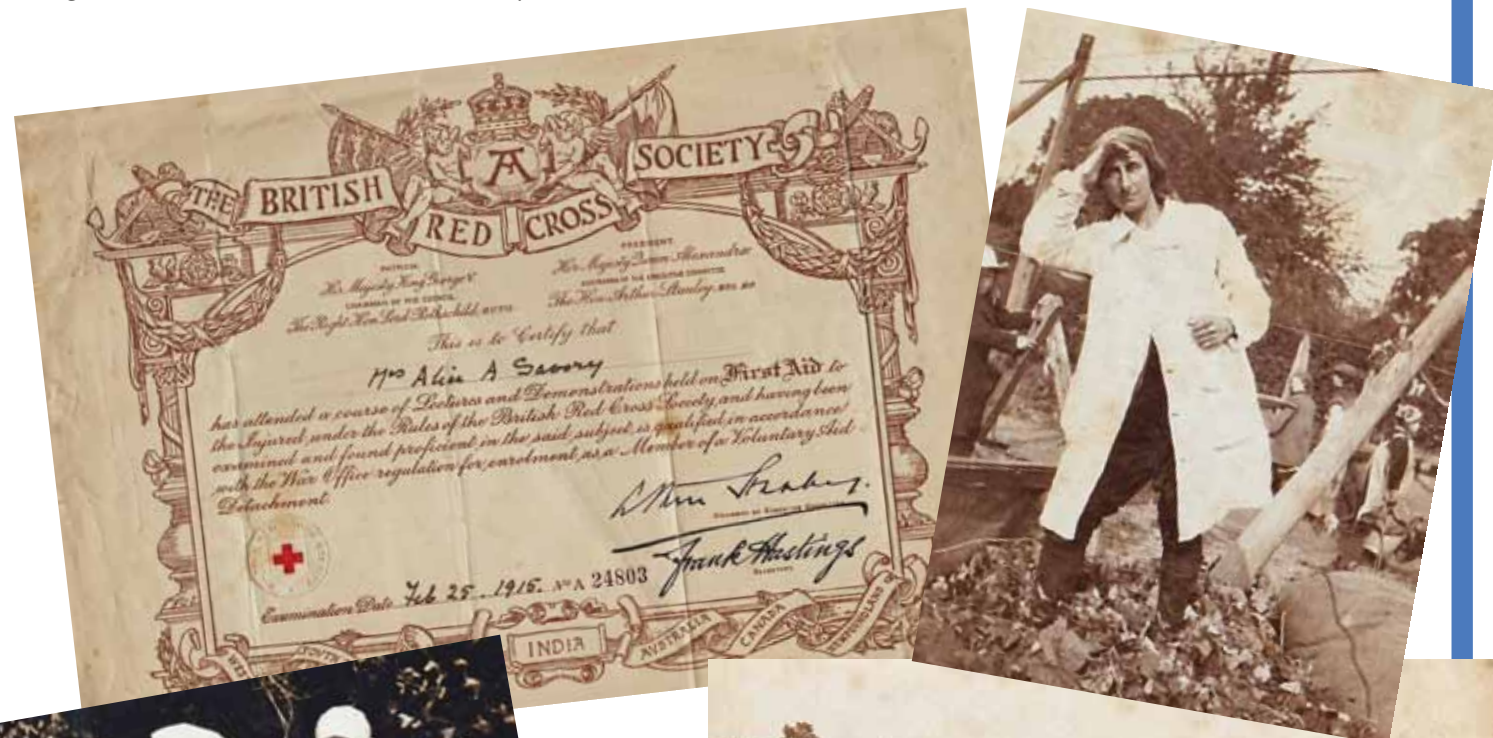 THE BRITISH RED CROSS SOCIETY
PATRON
His Majesty King George V
CHAIRMAN OF THE COUNCIL
The Right Hon Lord Rothschild, GCVO
PRESIDENT
Her Majesty Queen Alexandra
CHAIRMAN OF THE EXECUTIVE COMMITTEE
The Hon Arthur Stanley, MVO, MP
This is to Certify that
Mrs Alice A Savory
has attended a course of Lectures and Demonstrations held on First Aid to
the Injured, under the Rules of the British Red Cross Society, and having been
examined and found proficient in the said subject, is qualified, in accordance
with the War Office regulation for enrolment, as a Member of a Voluntary Aid
Detachment.
Frank Hastings
SECRETARY
Examination Date Feb 25 - 1915. No A 24803
INDIA
AUSTRALIA
CANADA